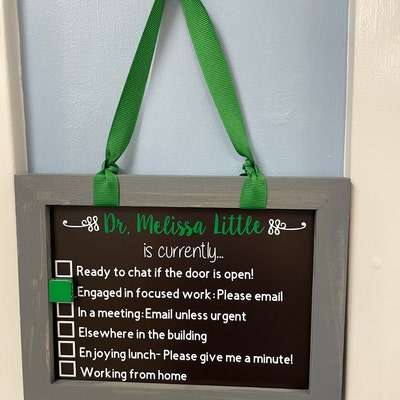 Dr. Melissa Little
is currently...
Ready to chat if the door is open!
Engaged in focused work: Please email
In a meeting: Email unless urgent
Elsewhere in the building
Enjoying lunch- Please give me a minute!
Working from home